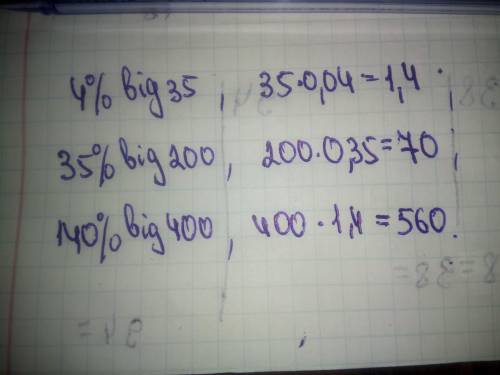 4% від 35 , 35·0,04=1,4 ;
35% від 200 , 200·0,35=70 ;
140% від 400 , 400·1,4=560.